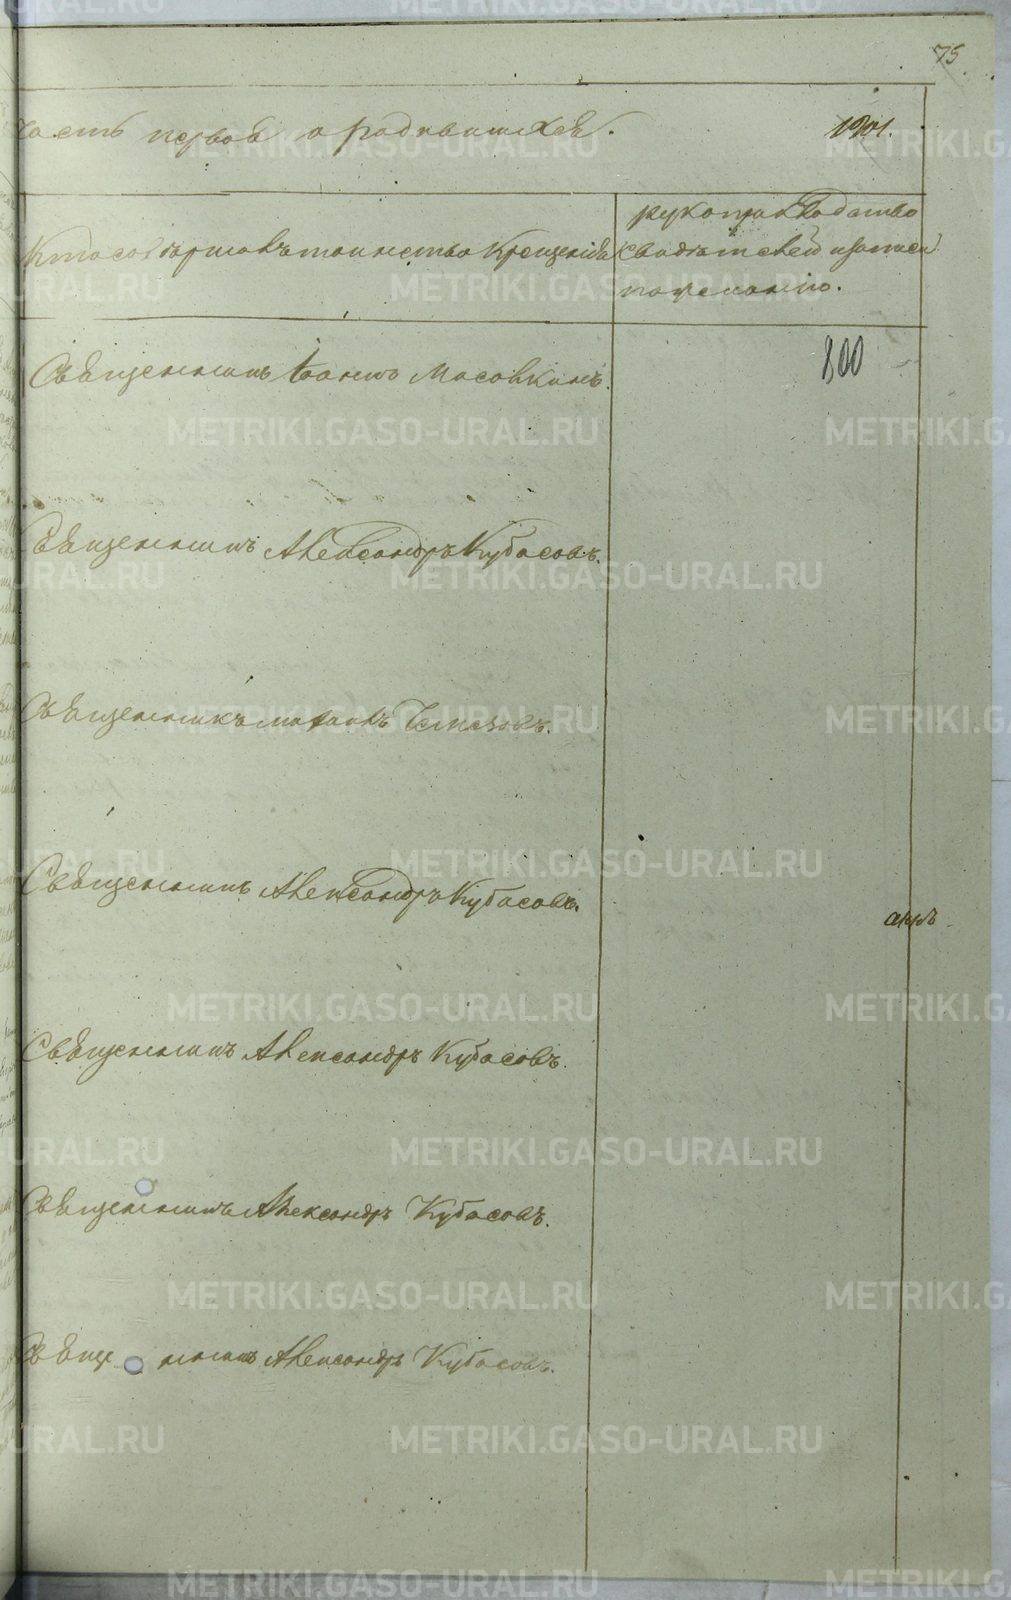 75
часть первоя о родившихся.
Кто совѣршавъ таинство Крещенія
рукоприкладство
свидѣтелей записи
по желанію.
800
Священникъ Іоаннъ Масовкинъ.
Священникъ Александръ Кубасовъ.
Священникъ
Священникъ Александръ Кубасовъ.
Священникъ Александръ Кубасовъ.
Священникъ Александръ Кубасовъ.
Священникъ Александръ Кубасовъ.
METRIKI.GASO-URAL.RU